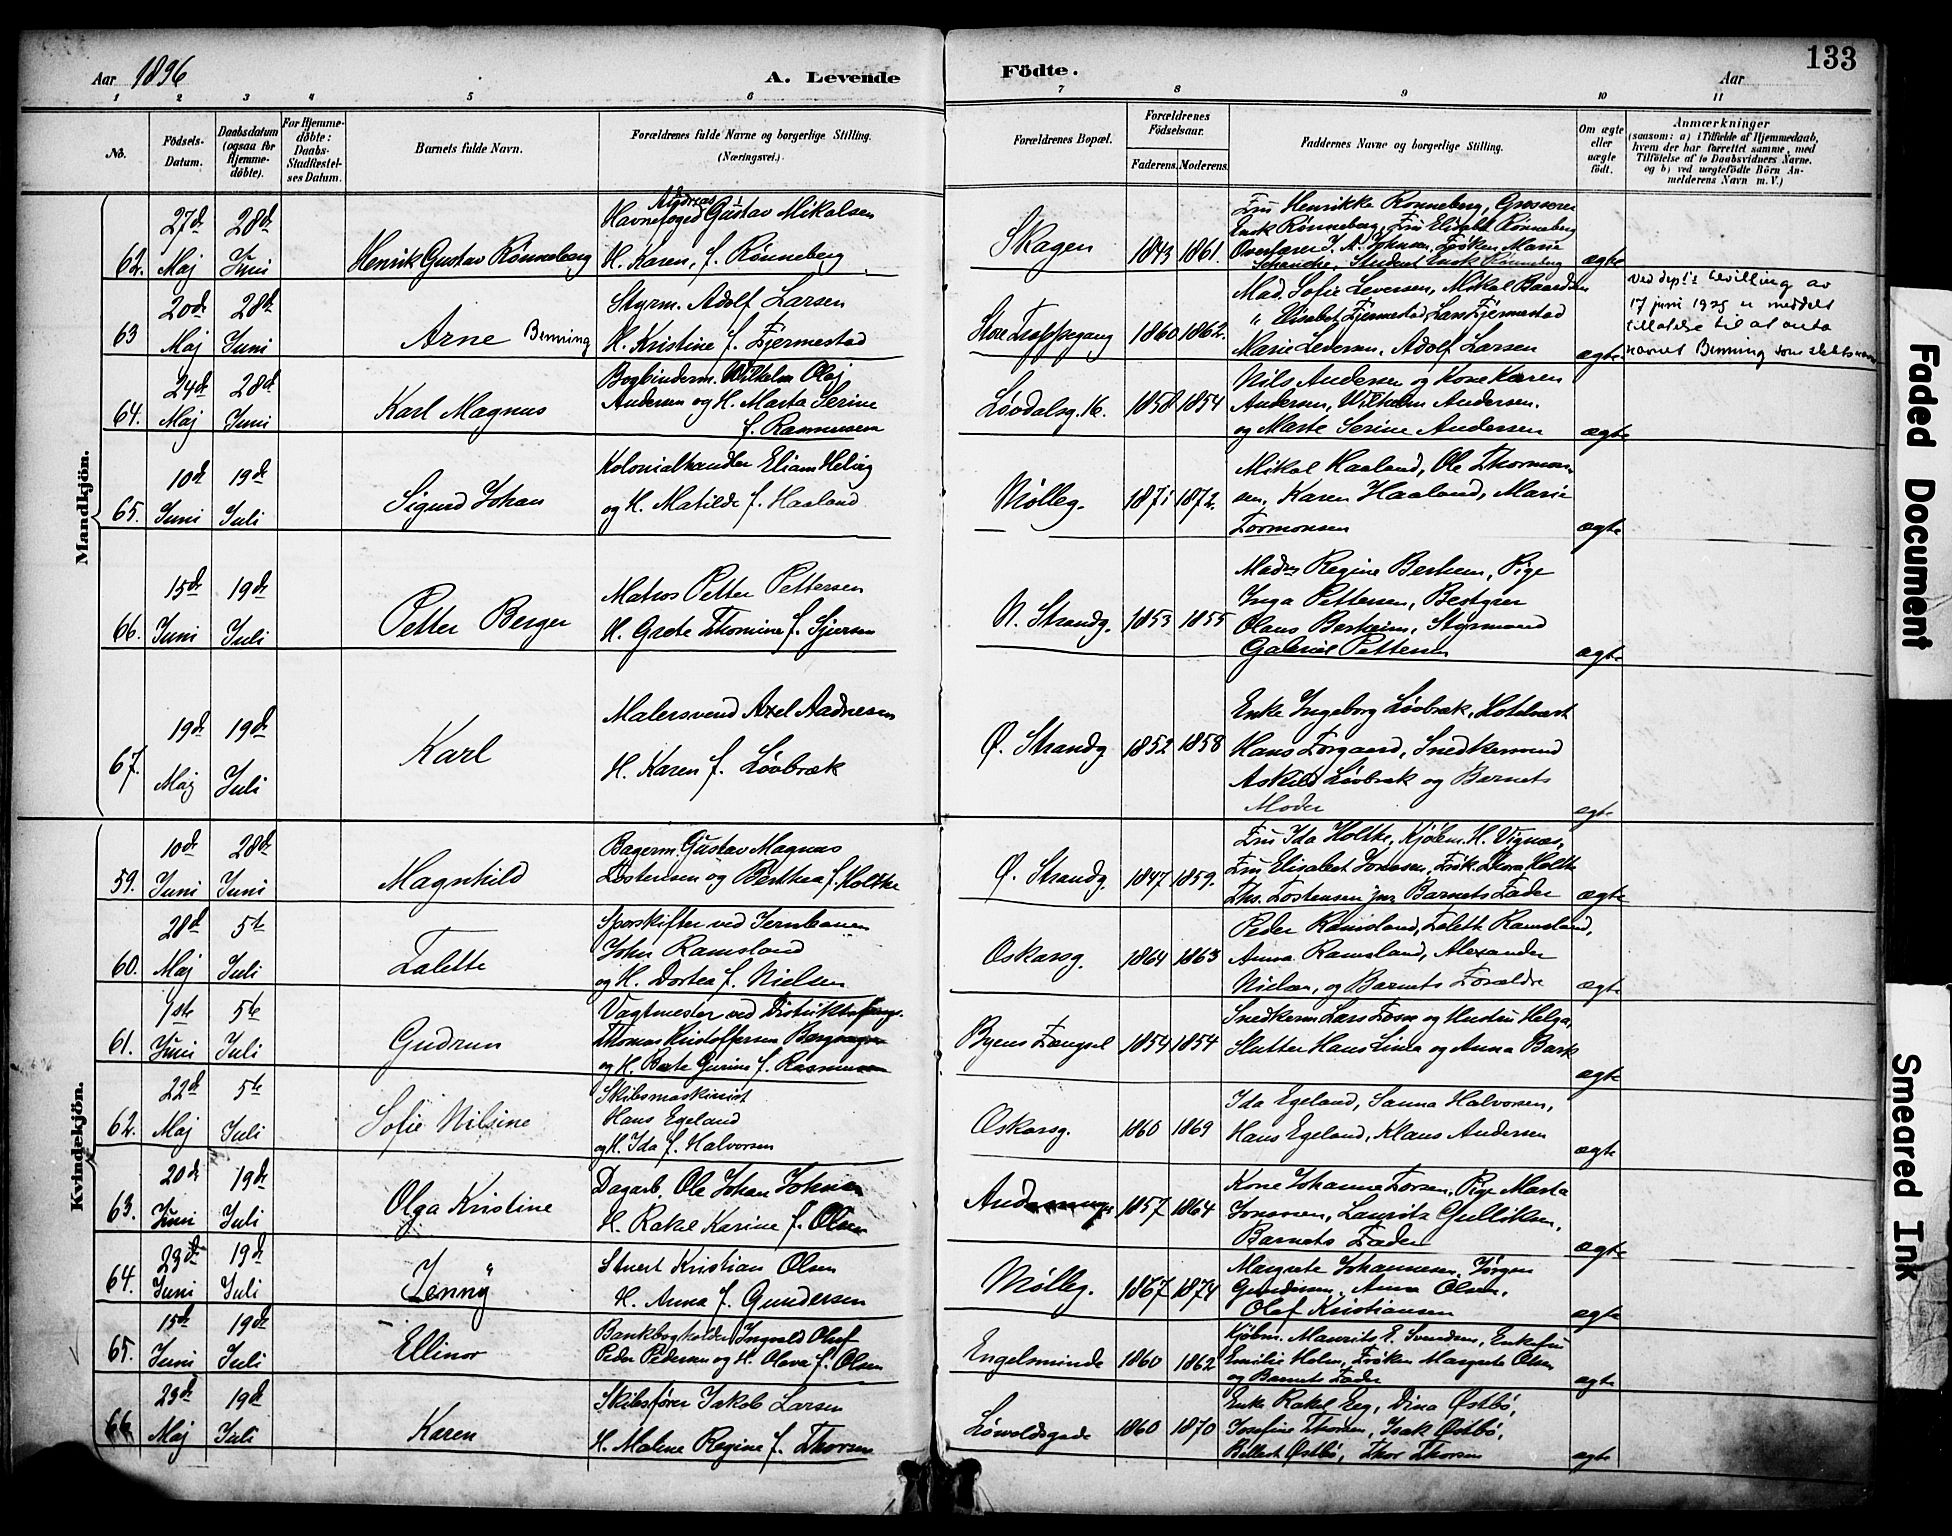 133
Aar 1896 A. Levende Födte. Aar
1 2 3 4 5 6 7 8 9 10 11
No.
Födsels-Datum.
Daabsdatum (ogsaa for Hjemme-döbte).
For Hjemme-döbte: Daabs-Stadfæstel-ses Datum.
Barnets fulde Navn.
Forældrenes fulde Navne og borgerlige Stilling.
(Næringsvei.)
Forældrenes Bopæl.
Forældrenes Födselsaar.
Faderens. Moderens.
Faddernes Navne og borgerlige Stilling.
Om ægte eller uægte født.
Anmærkninger
(saasom: a) i Tilfælde af Hjemmedaab,
hvem der har forrettet samme, med
Tilföielse af to Daabsvidners Navne.
og b) ved uægtefödte Börn An-
melderens Navn m. V.)
Mandkjön.
62. 27de Maj 28de Juni Henrik Gustav Rønneberg
Andreas
Havnefoged Gustav Mikalsen
H. Karen, f. Rønneberg
Skagen 1843 1861.
Fru Henrikke Rønneberg, Grosserer
Enok Rønneberg, Fru Elisabet Rønneberg
J. A. Johnsen, Frøken Marie
Student Enok Rønneberg
ægte
63 20de Maj 28de Juni Arne Benning
Styrm. Adolf Larsen
H. Kristine f. Fjermestad
Store Trappegang 1860 1862.
Mad. Sofie Leversen, Mikal Baardsen
" Elisabet Fjermestad, Lars Fjermestad
Marie Leversen, Adolf Larsen
ægte
Ved dept's bevilling av
17 juni 1925 er meddelt
tillatelse til at anta
navnet Benning som slektsnavn
64. 24de Maj 28de Juni Karl Magnus
Bogbinderm. Wilhelm Olaj
Andersen og H. Marta Serine
f. Rasmussen
Løvdalsg. 16. 1858 1854
Nils Andersen og Kone Karen
Andersen, Wilhelm Andersen.
og Marte Serine Andersen
ægte
65. 10de Juni 19de Juli Sigurd Johan
Kolonialhandler Eliam Helvig
og H. Matilde f. Haaland
Mølleg. 1871 1872.
Mikal Haaland, Ole Thormon-
sen, Karen Haaland, Marie
Tormonsen
ægte
66. 15de Juni 19de Juli Petter Berger
Matros Petter Pettersen
H. Grete Thomine f. Sjursen
N. Strandg. 1853 1855
Madm Regine Berheim, Pige
Inga Pettersen, Bestyrer
Olaus Berheim, Styrmand
Gabriel Pettersen
ægte
67. 19de Maj 19de Juli Karl
Malersvend Axel Aadnesen
H. Karen f. Løvbræk
Ø. Strandg 1852 1858
Enke Ingeborg Løvbræk, Hotelvært
Hans Forgaard, Snedkersvend
Askild Løvbræk og Barnets
Moder
egte
Kvindekjön.
59. 10de Juni 28de Juni Magnhild
Bagerm. Gustav Magnus
Tostensen og Berthea f. Holtke
Ø. Strandg 1847 1859.
Fru Ida Holtke, Kjøbm. H. Vignæs,
Fru Elisabert Tonessen, Frøk. Thora Holtke
Ths. Tostensen jnr Barnets Fader
ægte
60. 28de Maj 5te Juli Talette
Sporskifter ved Jernbanen
John Ramsland
og H. Dortea f. Nielsen
Oskarsg. 1864 1863
Peder Ramsland, Talette Ramsland,
Anna Ramsland, Alexander
Nielsen, og Barnets Forældre
ægte
61. 1ste Juni 5te Juli Gudrun
Vagtmester ved Distriktsfængs.
Thomas Kristoffersen
og H. Berte Gurine f. Rasmussen
Byens Fængsel 1854 1854
Snedkerm Lars Fosse og Hustru Helga,
Slutter Hans Lima og Anna Bark
ægte
62. 22de Maj 5te Juli Sofie Nilsine
Skibsmaskinist
Hans Egeland
og H. Ida f. Halvorsen
Oskarsg. 1860 1869
Ida Egeland, Sanna Halvorsen,
Hans Egeland, Klaus Andersen
ægte
63. 20de Juni 19de Juli Olga Kristine
Dagarb. Ole Johan Johnsen
H. Rakel Karine f. Olsen
1857 1864
Kone Johanne Torsen, Pige Marta
Tonessen, Lauritz Gulliksen,
Barnets Fader
ægte
64. 23de Juni 19de Juli Jenny
Stuert Kristian Olsen
H. Anna f. Gundersen
Mølleg. 1867 1874
Margrete Johannesen, Jørgen
Gundersen, Anna Olsen,
Olaf Kristiansen
ægte
65. 15de Juni 19de Juli Ellinor
Bankbogholder Ingvald Oluf
Peder Pedersen og H. Olava f. Olsen
Engelsminde 1860 1862
Kjøbm. Maurits E. Svendsen, Enkefru
Emilie Holm, Frøken Margrete Olsen
og Barnets Fader
ægte
66 23de Maj 19de Juli Karen
Skibsfører Jakob Larsen
H. Malene Regine f. Thorsen
Løwoldsgade 1860 1870
Enke Rakel Eeg, Dina Østbø,
Josefine Thorsen, Isak Østbø,
Østbø, Thor Thorsen
ægte
Faded Document
Smeared Ink